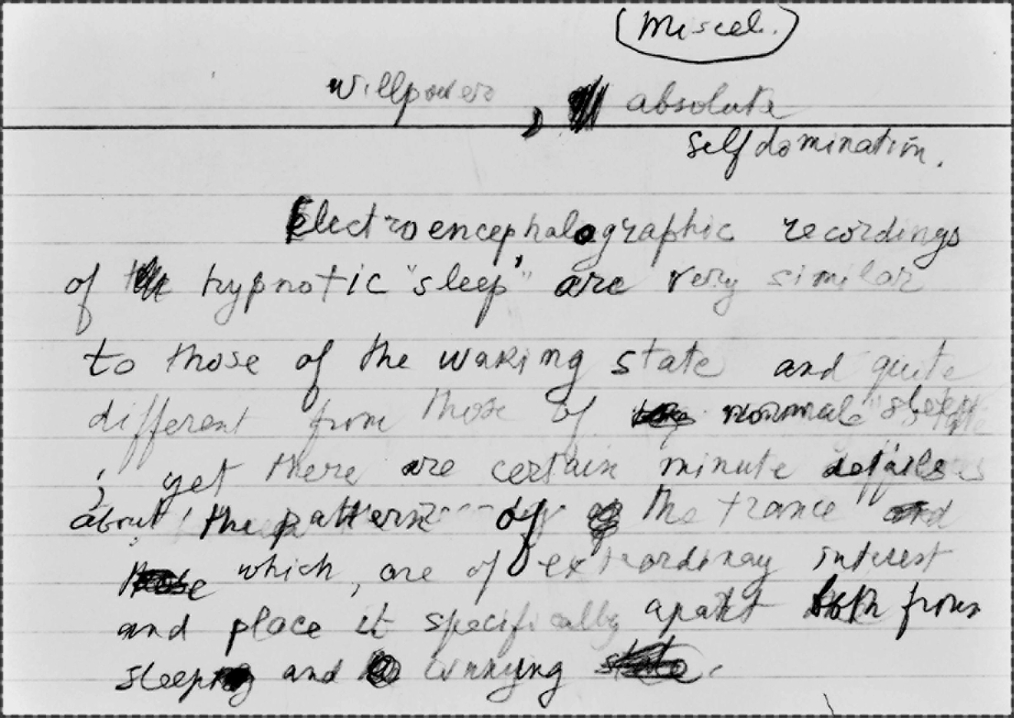 (Miscel.)
willpower, absolute
self domination.
Electroencephalographic recordings
of hypnotic "sleep" are very similar
to those of the waking state and quite
different from those of normal "sleep"
; yet there are certain minute details
about the pattern of the trance
which, are of extraordinary interest
and place it specifically apart both from
sleep and waking